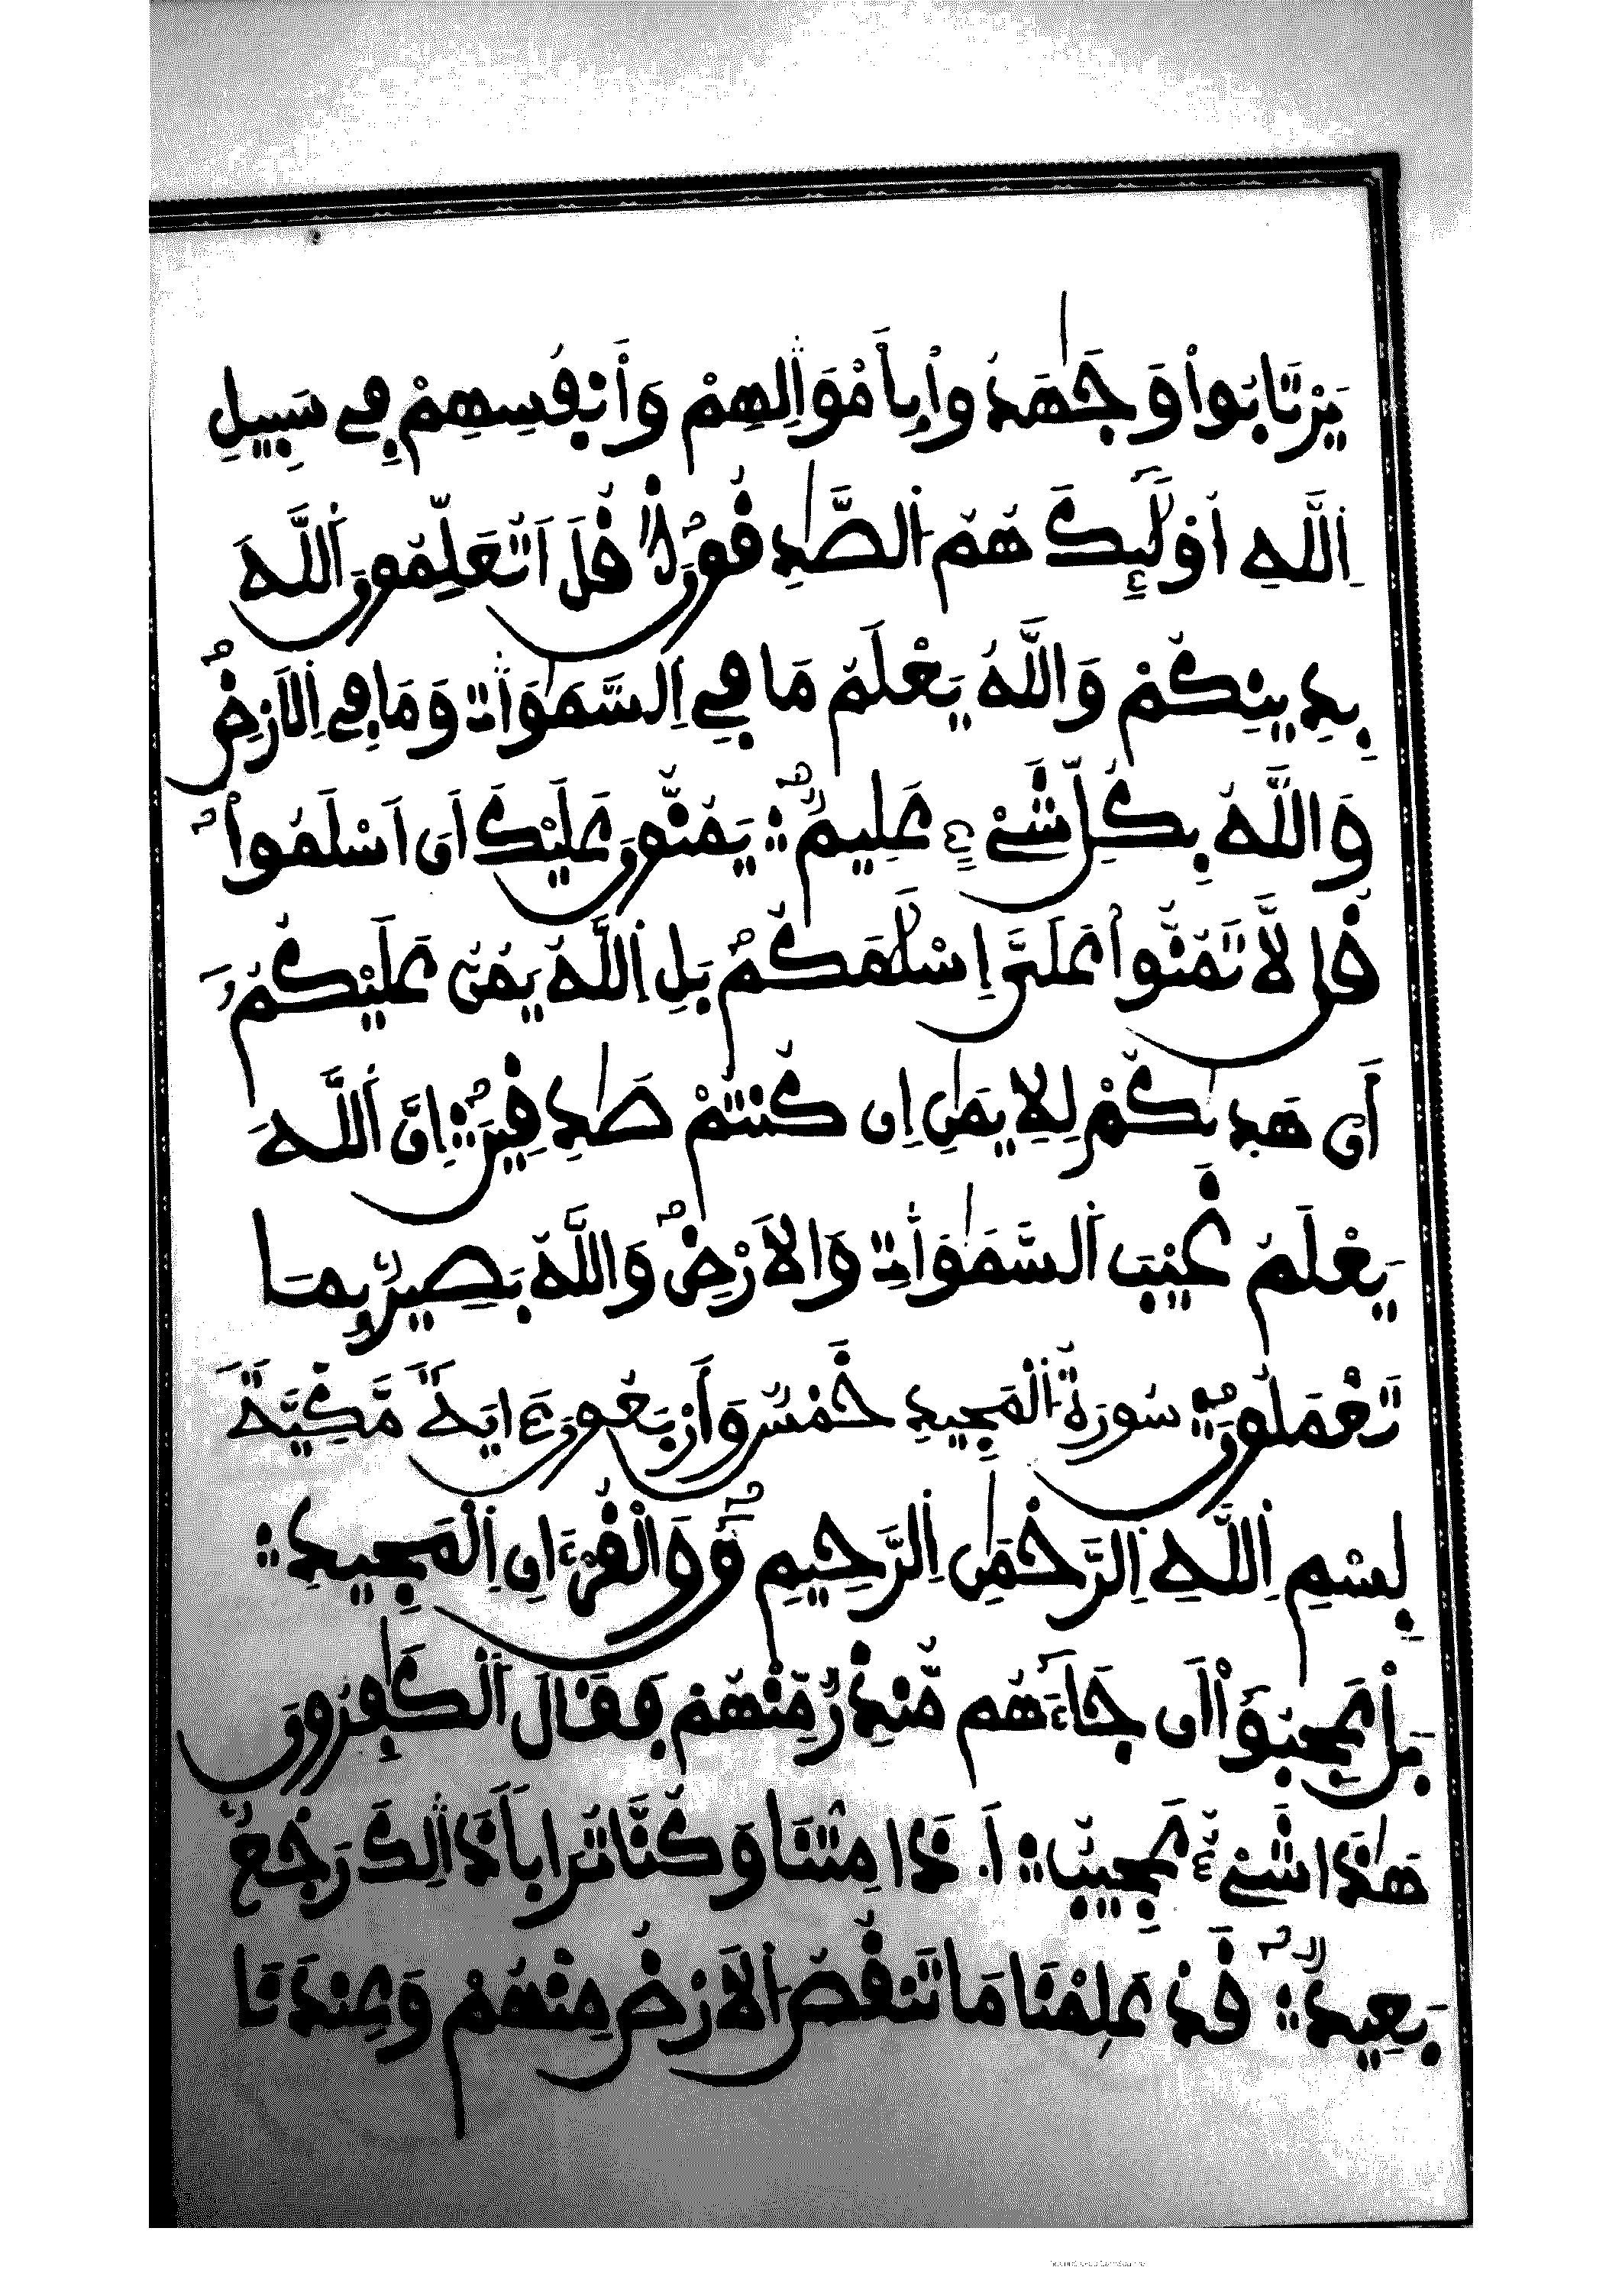 يَرْتَابُواْ وَجَٰهَدُواْ بِأَمْوَٰلِهِمْ وَأَنفُسِهِمْ فِے سَبِيلِ
اِ۬للَّهِ أُوْلَٰٓئِكَ هُمُ اُ۬لصَّٰدِقُونَۖ قُلَ اَتُعَلِّمُونَ اَ۬للَّهَ
بِدِينِكُمْ وَاللَّهُ يَعْلَمُ مَا فِے اِ۬لسَّمَٰوَٰتِ وَمَا فِے اِ۬لَارْضِۖ
وَاللَّهُ بِكُلِّ شَےْءٍ عَلِيمٞۖ يَمُنُّونَ عَلَيْكَ أَنَ اَسْلَمُواْۖ
قُل لَّا تَمُنُّواْ عَلَىَّ إِسْلَٰمَكُمۖ بَلِ اِ۬للَّهُ يَمُنُّ عَلَيْكُمُۥٓ
أَنْ هَدٜىٰكُمْ لِلِايمَٰنِ إِن كُنتُمْ صَٰدِقِينَۖ إِنَّ اَ۬للَّهَ
يَعْلَمُ غَيْبَ اَ۬لسَّمَٰوَٰتِ وَالَارْضِۖ وَاللَّهُ بَصِيرُۢ بِمَا
تَعْمَلُونَۖ سُورَةُ اُ۬لْمَجِيدِ خَمْسٌ وَأَرْبَعُونَ ءَايَةً مَّكِّيَّةٌ
بِسْمِ اِ۬للَّهِ اِ۬لرَّحْمَٰنِ اِ۬لرَّحِيمِ قَٓۖ وَالْقُرْءَانِ اِ۬لْمَجِيدِ
بَلْ عَجِبُوٓاْ أَن جَآءَهُم مُّنذِرٞ مِّنْهُمْ فَقَالَ اَ۬لْكَٰفِرُونَ
هَٰذَا شَےْءٌ عَجِيبٌ اَ۟ذَا مِتْنَا وَكُنَّا تُرَاباٗ ذَٰلِكَ رَجْعُۢ
بَعِيدٞۖ قَدْ عَلِمْنَا مَا تَنقُصُ اُ۬لَارْضُ مِنْهُمْ وَعِندَنَا